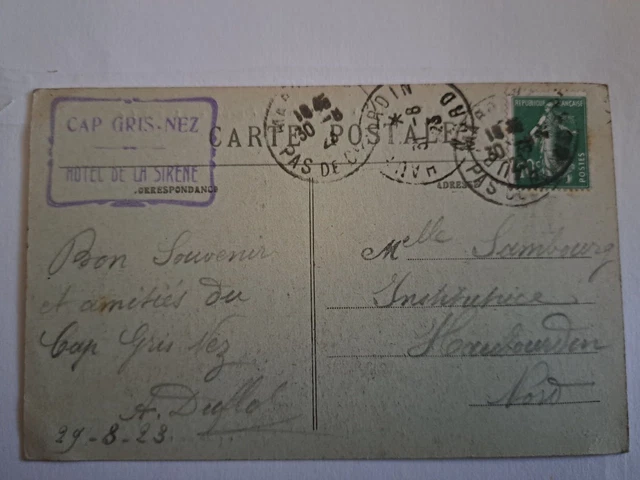 CAP GRIS-NEZ
HOTEL DE LA SIRÈNE
CARTE POSTALE
CORRESPONDANCE
ADRESSE
PAS DE
REPUBLIQUE FRANÇAISE
POSTES
Bon Souvenir
et amitiés du
Cap Gris Nez
A. Duflo
29-8-23
Melle Sambourg
Institutrice
Haubourdin
Nord